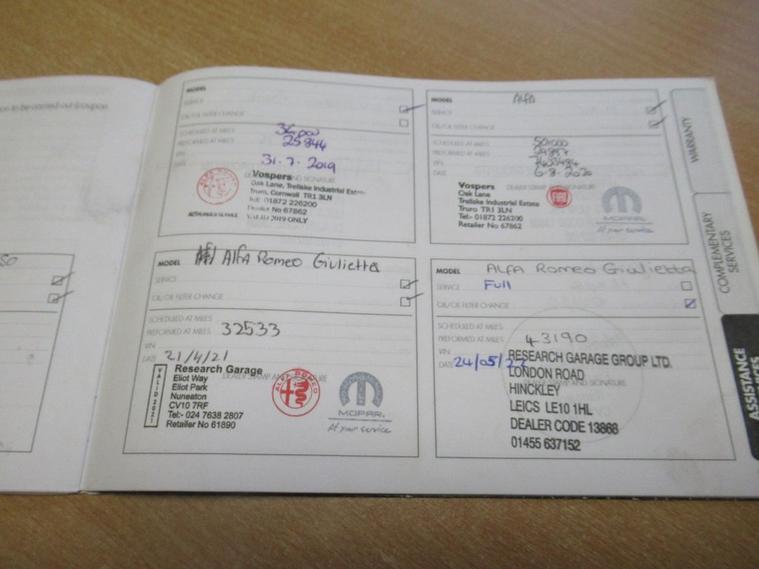 MODEL
SERVICE
OIL/OIL FILTER CHANGE
SCHEDULED AT MILES
PREFORMED AT MILES 25844
VIN
DATE 31.7.2019
Vospers
Oak Lane, Treliske Industrial Estate
Truro, Cornwall TR1 3LN
Tel: 01872 226200
Dealer No 67862
VALID 2019 ONLY
MODEL ALFA
SERVICE
OIL/OIL FILTER CHANGE
SCHEDULED AT MILES
PREFORMED AT MILES
VIN
DATE 6.8.2020
DEALER STAMP AND SIGNATURE
Vospers
Oak Lane
Treliske Industrial Estate
Truro TR1 3LN
Tel:- 01872 226200
Retailer No 67862
FIAT
MOPAR
At your service
MODEL Alfa Romeo Giulietta
SERVICE
OIL/OIL FILTER CHANGE
SCHEDULED AT MILES
PREFORMED AT MILES 32533
VIN
DATE 21/4/21
DEALER STAMP AND SIGNATURE
VALID 2021
Research Garage
Eliot Way
Eliot Park
Nuneaton
CV10 7RF
Tel:- 024 7638 2807
Retailer No 61890
ALFA ROMEO
MOPAR
At your service
MODEL ALFA Romeo Giulietta
SERVICE Full
OIL/OIL FILTER CHANGE
SCHEDULED AT MILES
PREFORMED AT MILES 43190
VIN
DATE 24/05/
RESEARCH GARAGE GROUP LTD.
LONDON ROAD
HINCKLEY
LEICS LE10 1HL
DEALER CODE 13868
01455 637152
WARRANTY
COMPLEMENTARY
SERVICES
ASSISTANCE